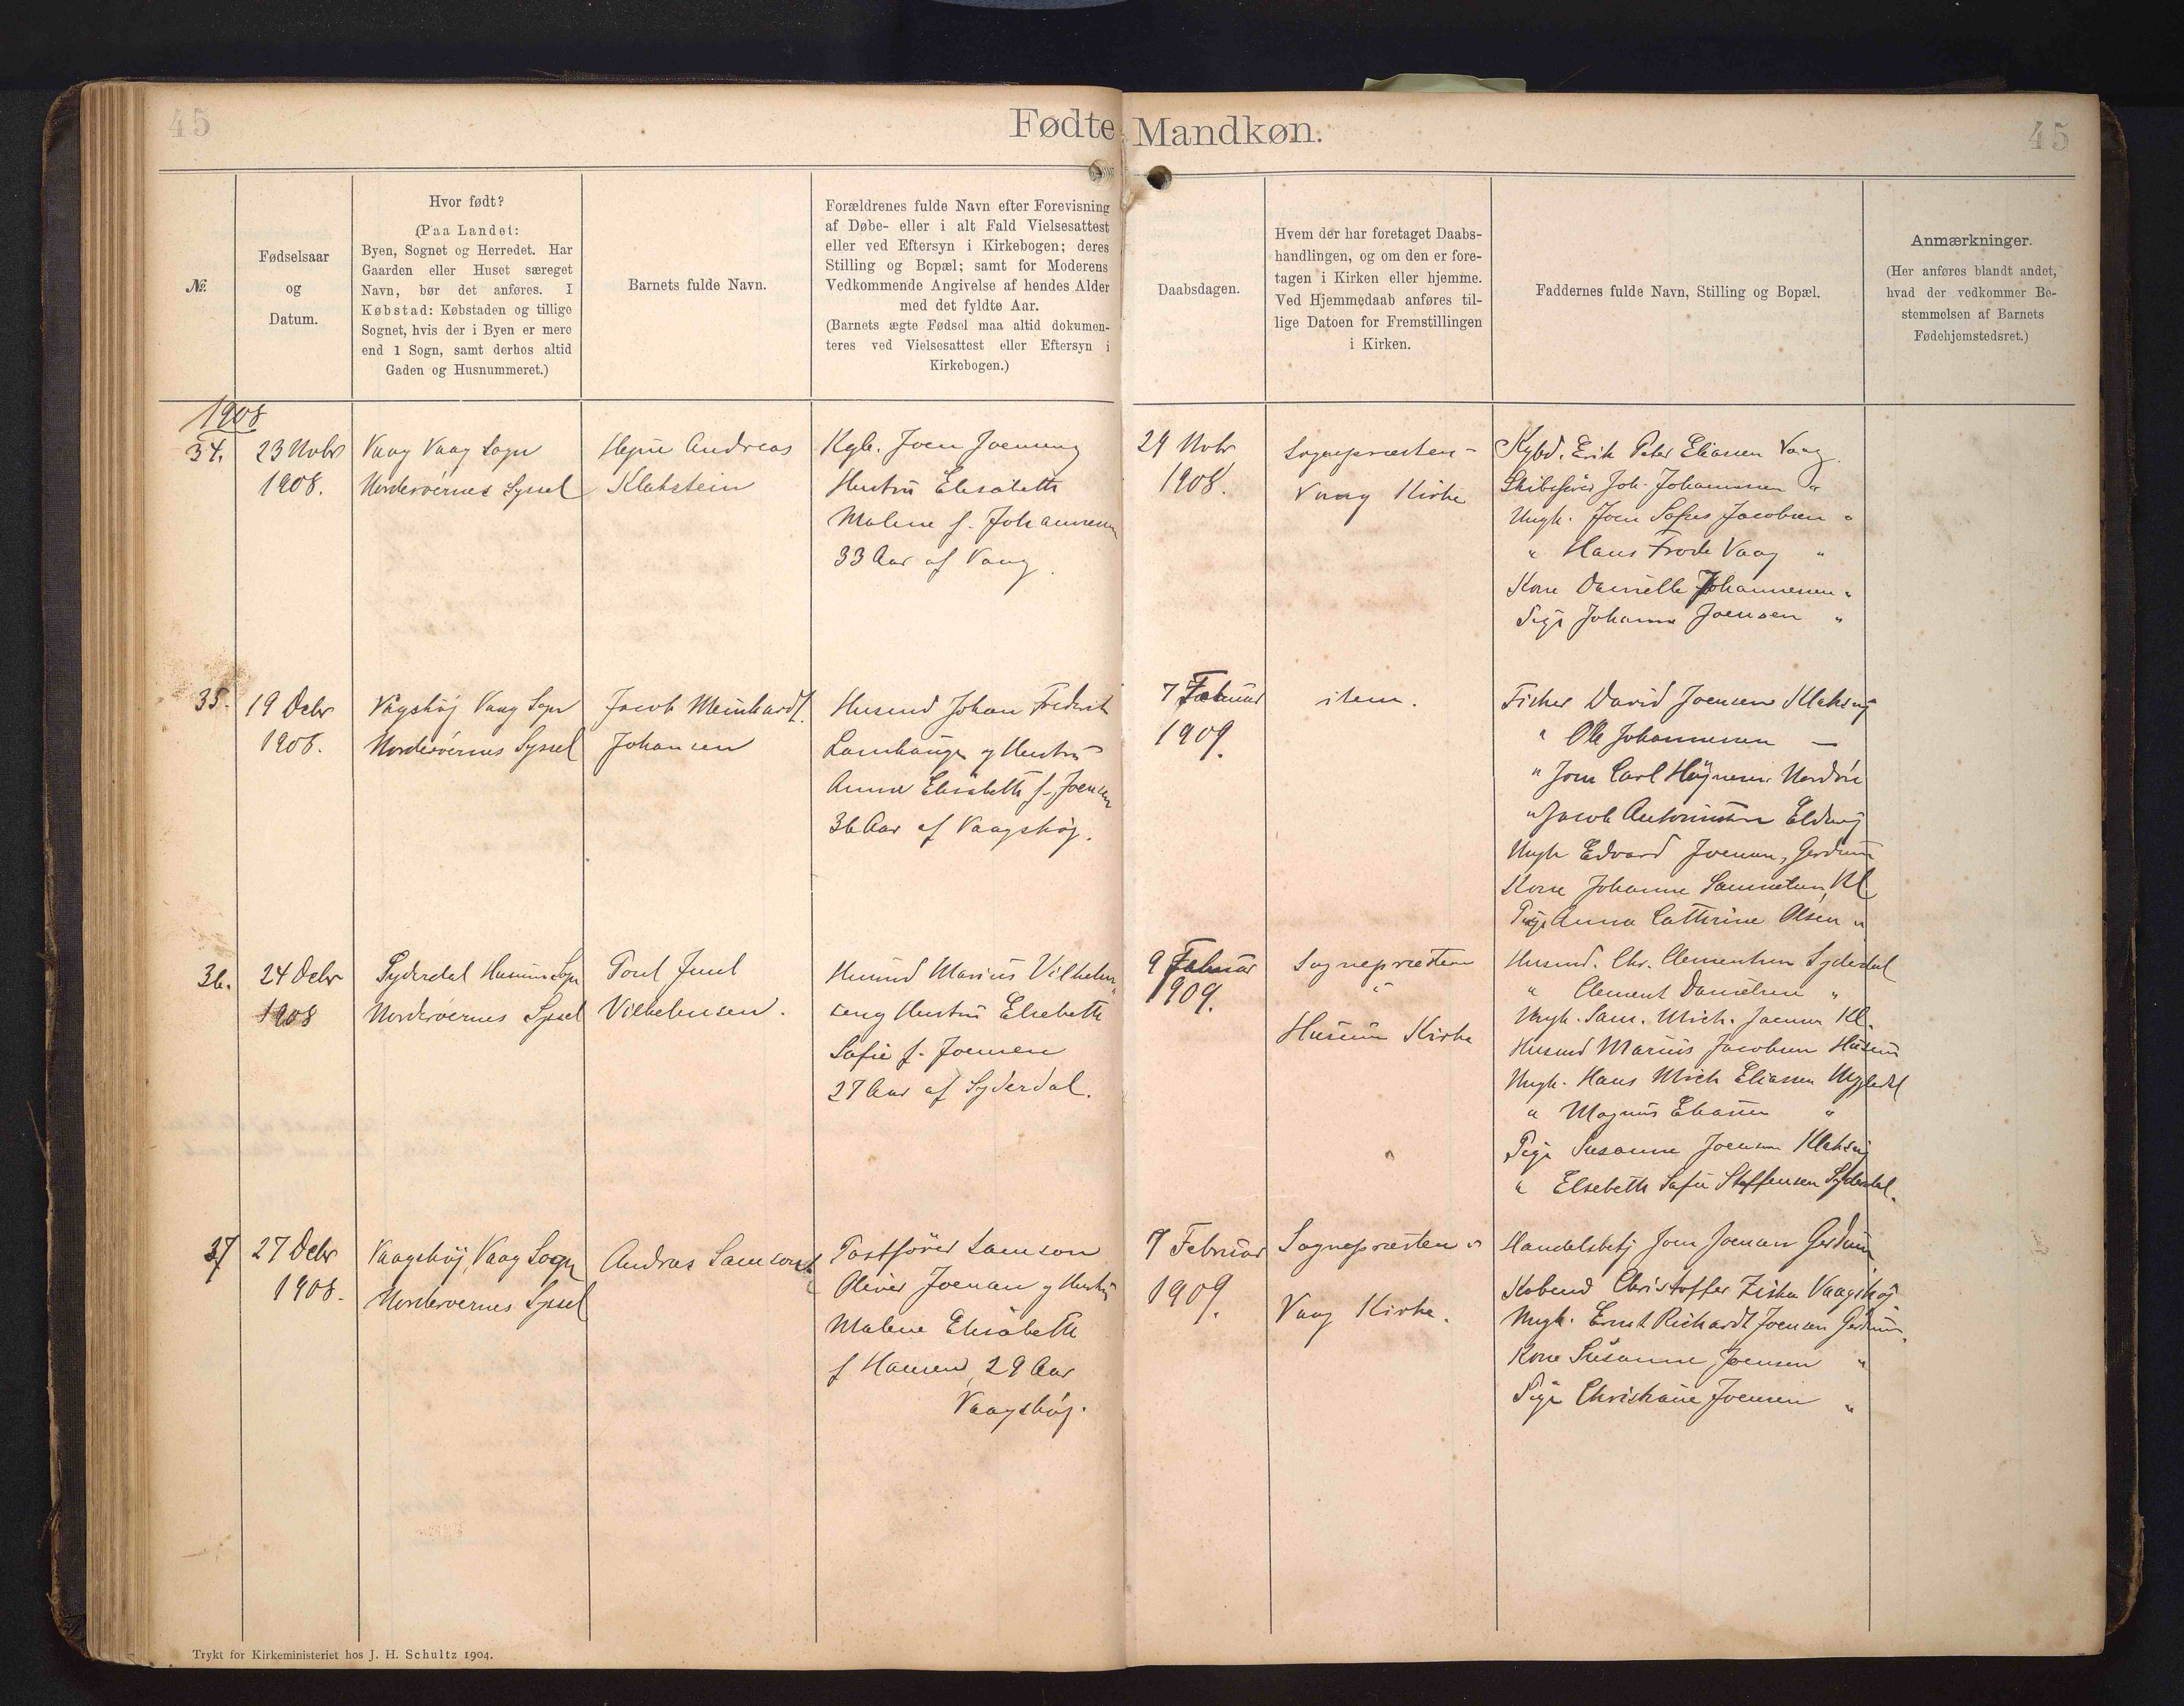 45
Fødte Mandkøn.
45
№.
Fødselsaar
og
Datum.
Hvor født?
(Paa Landet:
Byen, Sognet og Herredet. Har
Gaarden eller Huset særeget
Navn, bør det anføres. I
Købstad: Købstaden og tillige
Sognet, hvis der i Byen er mere
end 1 Sogn, samt derhos altid
Gaden og Husnummeret.)
Barnets fulde Navn.
Forældrenes fulde Navn efter Forevisning
af Døbe- eller i alt Fald Vielsesattest
eller ved Eftersyn i Kirkebogen; deres
Stilling og Bopæl; samt for Moderens
Vedkommende Angivelse af hendes Alder
med det fyldte Aar.
(Barnets ægte Fødsel maa altid dokumen-
teres ved Vielsesattest eller Eftersyn i
Kirkebogen.)
Daabsdagen.
Hvem der har foretaget Daabs-
handlingen, og om den er fore-
tagen i Kirken eller hjemme.
Ved Hjemmedaab anføres til-
lige Datoen for Fremstillingen
i Kirken.
Faddernes fulde Navn, Stilling og Bopæl.
Anmærkninger.
(Her anføres blandt andet,
hvad der vedkommer Be-
stemmelsen af Barnets
Fødehjemstedsret.)
1908
34.
23 Novbr
1908.
Vaag Vaag Sogn
Norderöernes Syssel
Andreas
Klakstein
Joen
Hustru Elisabeth
Malene f. Johannesen
33 Aar af Vaag.
29 Novbr
1908.
Sognepræsten -
Vaag Kirke
Erik Peter Eliasen Vaag.
Joh. Johannesen "
Ungk. Joen Jacobsen "
" Hans Frode Vaag "
Kone Danielle Johannesen "
Pige Johanna Joensen "
35.
19 Decbr
1908.
Vågshøj Vaag Sogn
Norderöernes Syssel
Jacob Meinhardt
Johansen
Husmd Johan Frederik
og Hustru
Anna Elisabeth f. Joensen
36 Aar af Vaagshøj.
7 Februar
1909.
item.
Fisker David Joensen Klaksvig
" Ole Johannesen —
" Joen Carl Højnesen
" Jacob Eldevig
Ungk Edvard Joensen, Gerdum
Kone Johanne Samuelsen Kl.
Pige Anna Cathrine Olsen "
36.
24 Decbr
1908
Syderdal Husum Sogn
Norderöernes Syssel
Poul Juul
Vilhelmsen.
Husmd Marius Vilhelm-
sen og Hustru Elsebeth
Sofie f. Joensen
27 Aar af Syderdal.
9 Februar
1909.
Sognepræsten
Husum Kirke
Husmd. Chr. Clementsen Syderdal
" Clement Danielsen "
Ungk. Sam. Mich. Joensen Kl.
Husmd Marius Jacobsen Husum
Ungk. Hans Mich Eliasen
" Magnus Eliasen "
Pige Susanne Joensen Klaksvig
" Elsebeth Sofie Steffensen Syderdal.
37
27 Decbr
1908.
Vaagshøj, Vaag Sogn
Norderöernes Syssel
Andreas Samson
Postfører Samson
Oliver Joensen og Hustru
Malene Elisabeth
f Hansen, 29 Aar
Vaagshøj.
7 Februar
1909.
Sognepræsten "
Vaag Kirke.
Handelsbetj Joen Joensen Gerdum
Christoffer Ziska Vaagshøj
Ungk. Ernst Richardt Joensen Gerdum.
Kone Susanne Joensen "
Pige Christiane Joensen "
Trykt for Kirkeministeriet hos J. H. Schultz 1904.